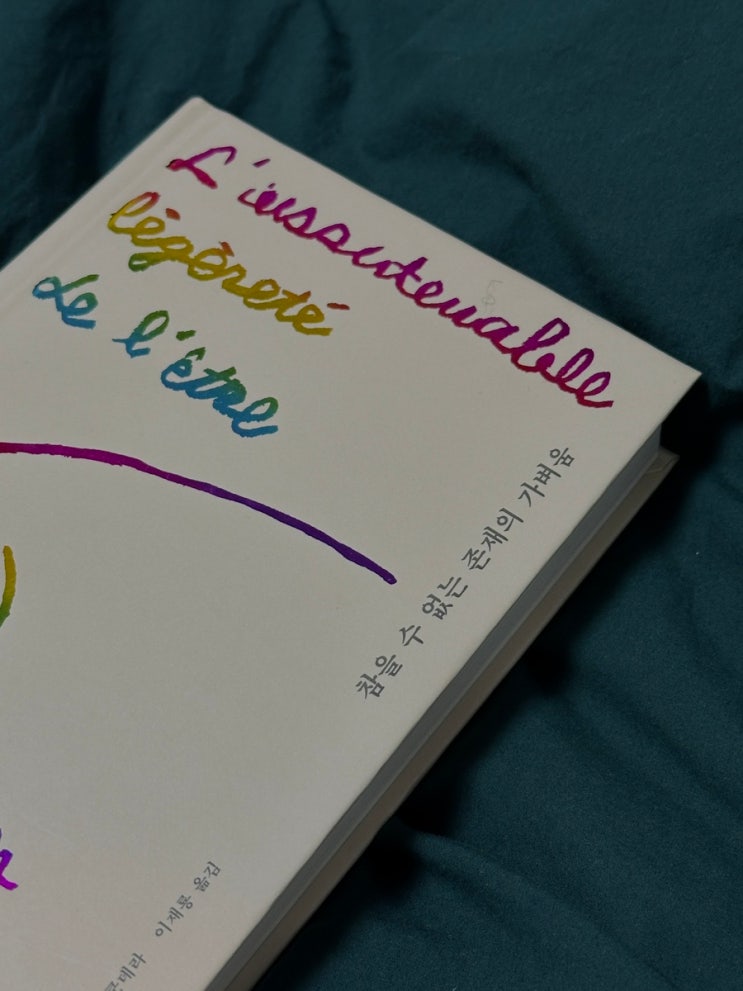 L'insoutenable
légèreté
de l'être
참을 수 없는 존재의 가벼움
쿤데라 이재룡 옮김